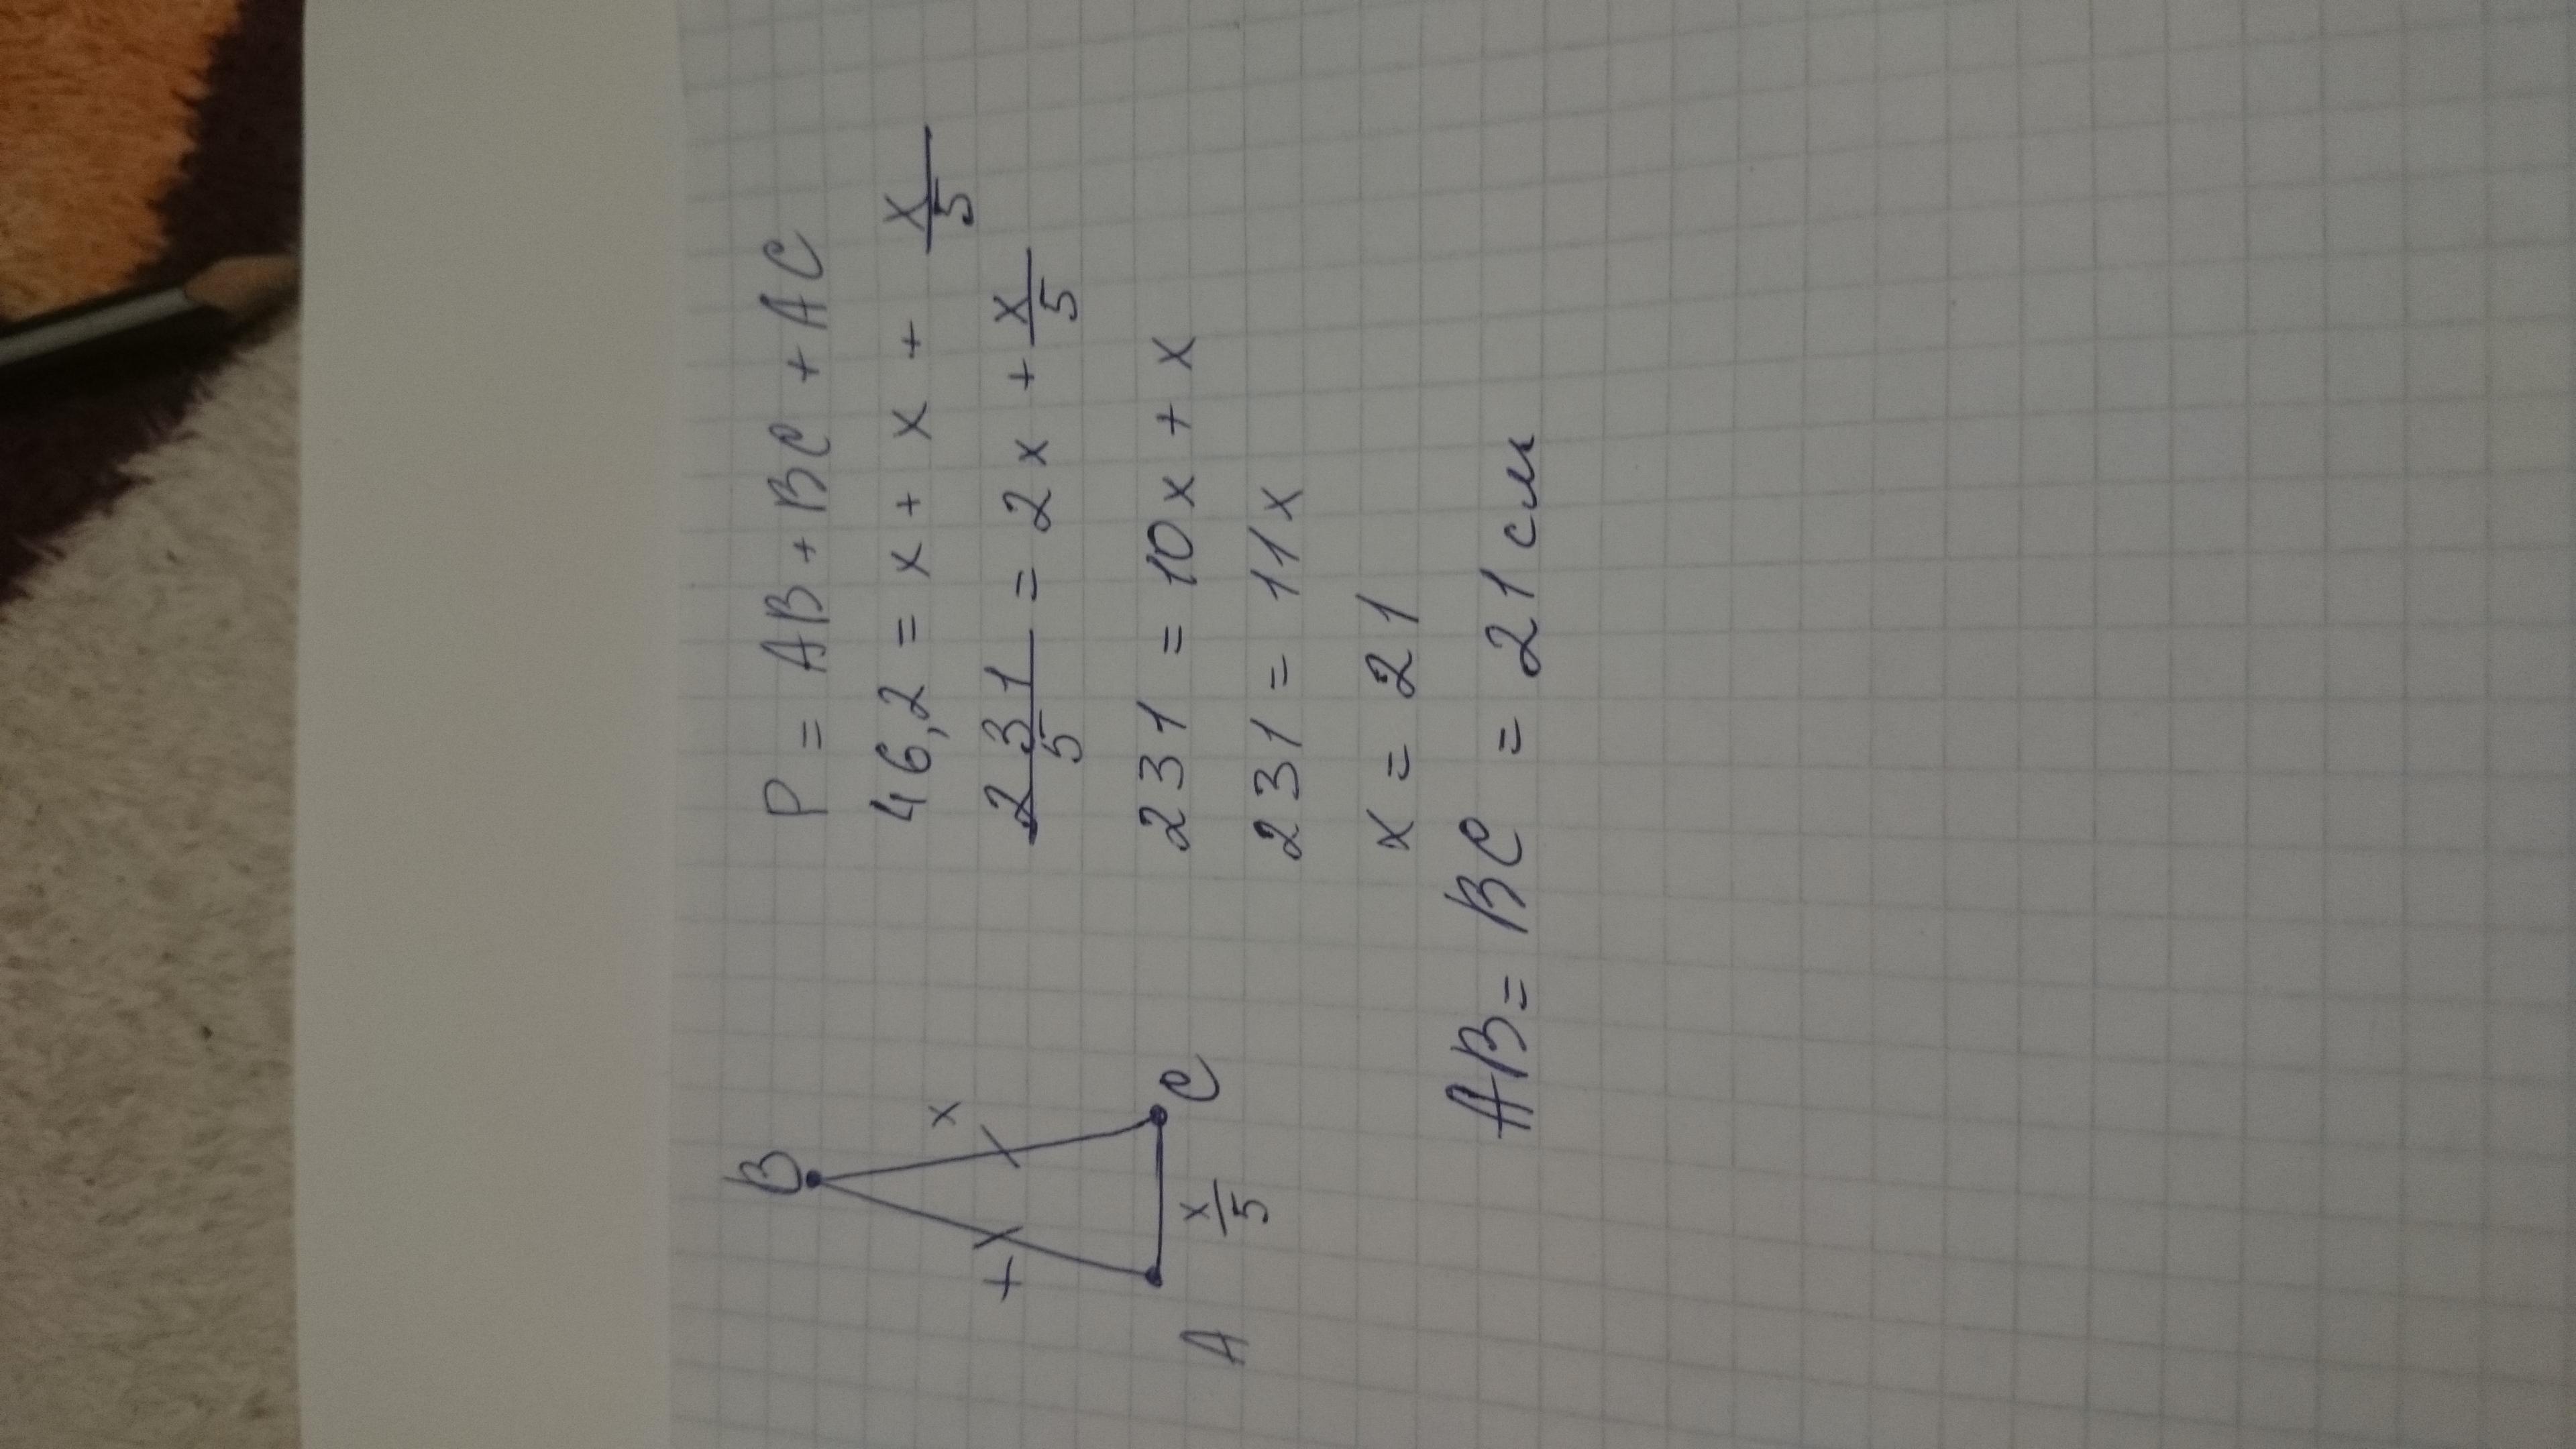 P = AB + BC + AC
46,2 = x + x + x/5
231/5 = 2x + x/5
231 = 10x + x
231 = 11x
x = 21
AB = BC = 21 см
B
x x
A C
x/5